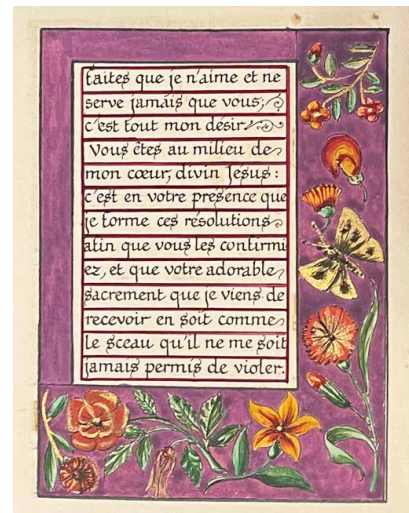 faites que je n'aime et ne
serve jamais que vous;
c'est tout mon désir
Vous êtes au milieu de
mon cœur, divin Jesus :
c'est en votre présence que
je forme ces résolutions
afin que vous les confirmi
ez, et que votre adorable
sacrement que je viens de
recevoir en soit comme
le sceau qu'il ne me soit
jamais permis de violer.